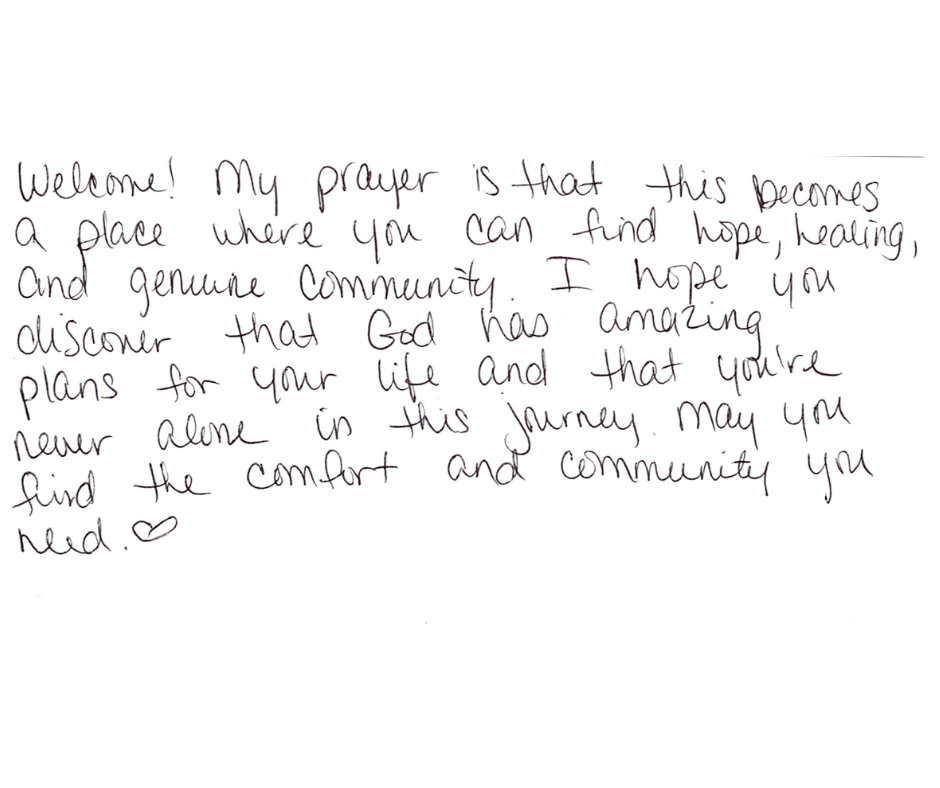 Welcome! My prayer is that this becomes
a place where you can find hope, healing,
and genuine community. I hope you
discover that God has amazing
plans for your life and that you're
never alone in this journey. May you
find the comfort and community you
need. ♡